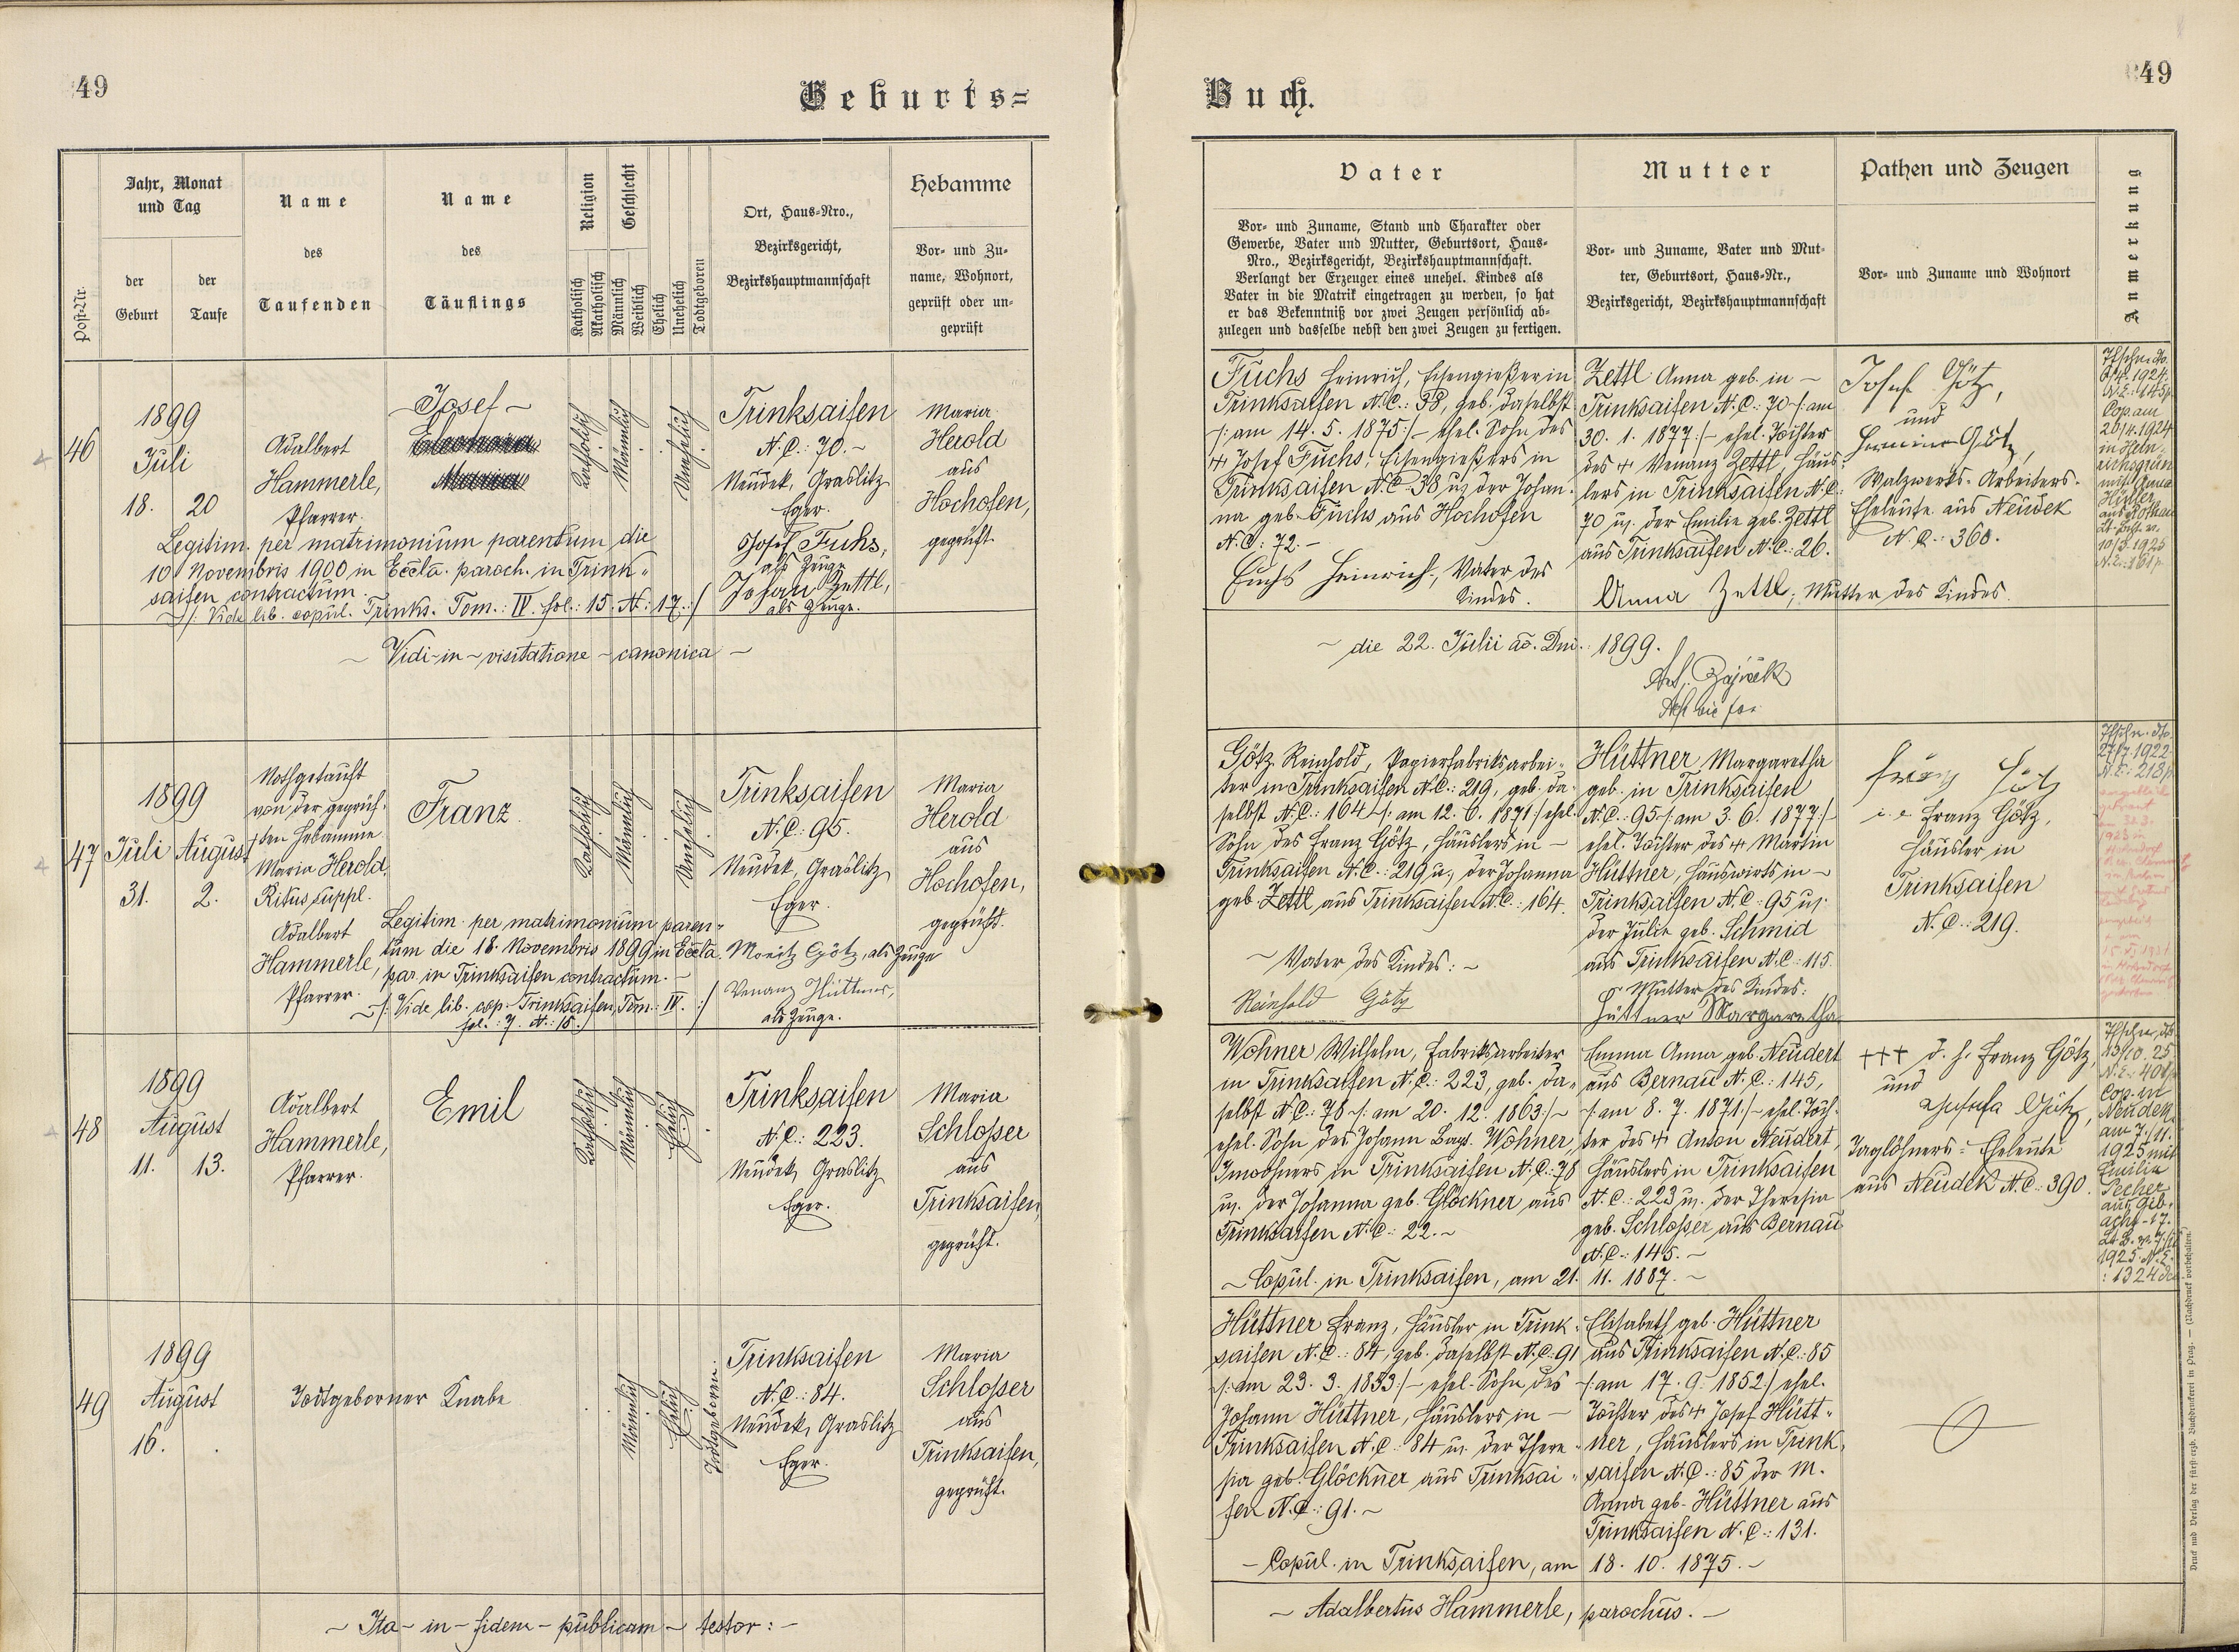 49
Geburts=
Jahr, Monat
und Tag
Name
Name
Religion
Geschlecht
Ort, Haus-Nro.,
Hebamme
des
des
Bezirksgericht,
Vor- und Zu-
Post-Nr.
der
der
Katholisch
Akatholisch
Männlich
Weiblich
Ehelich
Unehelich
Todtgeboren
Bezirkshauptmannschaft
name, Wohnort,
Geburt
Taufe
Taufenden
Täuflings
geprüft oder un-
geprüft
46
1899
Juli
18. 20
Adalbert
Hammerle,
Pfarrer.
- Josef -
Eleonora
Maria
Katholisch
Männlich
Unehelich
Trinksaifen
N. C.: 70. -
Neudek, Graslitz
Eger.
Maria
Herold
aus
Hochofen,
geprüft.
Legitim. per matrimonium parentum die
10 Novembris 1900 in Eccla. paroch. in Trink-
saifen contractum.
/: Vide lib. copul. Trinks. Tom.: IV. fol.: 15. N.: 17. :/
Josef Fuchs,
als Zeuge
Johann Zettl,
als Zeuge.
~ Vidi - in ~ visitatione ~ canonica ~
47
1899
Juli August
31. 2.
Nothgetauft
von der geprüf-
ten Hebamme
Maria Herold,
Ritus suppl.
Adalbert
Hammerle,
Pfarrer.
Franz.
Katholisch
Männlich
Unehelich
Trinksaifen
N. C.: 95.
Neudek, Graslitz
Eger.
Maria
Herold
aus
Hochofen,
geprüft.
Legitim. per matrimonium paren-
tum die 18. Novembris 1899 in Eccla.
par. in Trinksaifen contractum. -
/: Vide lib. cop. Trinksaifen, Tom.: IV. :/
fol.: 7. N.: 18.
Moritz Götz, als Zeuge
Venanz Hüttner,
als Zeuge.
48
1899
August
11. 13.
Adalbert
Hammerle,
Pfarrer.
Emil
Katholisch
Männlich
Ehelich
Trinksaifen
N. C.: 223.
Neudek, Graslitz
Eger.
Maria
Schlosser
aus
Trinksaifen,
geprüft.
49
1899
August
16.
Todtgeborner Knabe
Männlich
Ehelich
Todtgeboren.
Trinksaifen
N. C.: 84.
Neudek, Graslitz
Eger.
Maria
Schlosser
aus
Trinksaifen,
geprüft.
~ Ita - in - fidem - publicam ~ testor: -
Buch.
49
Vater
Mutter
Pathen und Zeugen
Anmerkung
Vor- und Zuname, Stand und Charakter oder
Gewerbe, Vater und Mutter, Geburtsort, Haus-
Nro., Bezirksgericht, Bezirkshauptmannschaft.
Verlangt der Erzeuger eines unehel. Kindes als
Vater in die Matrik eingetragen zu werden, so hat
er das Bekenntniß vor zwei Zeugen persönlich ab-
zulegen und dasselbe nebst den zwei Zeugen zu fertigen.
Vor- und Zuname, Vater und Mut-
ter, Geburtsort, Haus-Nr.,
Bezirksgericht, Bezirkshauptmannschaft
Vor- und Zuname und Wohnort
Fuchs Heinrich, Eisengießer in
Trinksaifen N. C.: 38, geb. daselbst
/: am 14. 5. 1875 :/ ehel. Sohn des
Josef Fuchs, Eisengießers in
Trinksaifen N. C. 38 u. der Johan-
na geb. Fuchs aus Hochofen
N. C.: 72. -
Fuchs Heinrich, Vater des
Kindes.
Zettl Anna geb. in -
Trinksaifen N. C.: 70 /: am
30. 1. 1877. :/ ehel. Tochter
des Venanz Zettl, Häus-
lers in Trinksaifen N. C.
70 u. der Emilie geb. Zettl
aus Trinksaifen N. C.: 26.
Anna Zettl, Mutter des Kindes.
Josef Götz,
und
Hermine Götz,
Walzwerks-Arbeiters-
Eheleute aus Neudek
N. C.: 360.
Cop. am
20/4. 1924
in Hein-
richsgrün
mit Anna
~ die 22. Julii ao. Dni.: 1899.
Götz Reinhold, Papierfabriksarbei-
ter in Trinksaifen N. C.: 219, geb. da-
selbst N. C.: 164 /: am 12. 6. 1871 :/ ehel.
Sohn des Franz Götz, Häuslers in -
Trinksaifen N. C.: 219 u. der Johanna
geb. Zettl aus Trinksaifen N. C.: 164.
~ Vater des Kindes: ~
Reinhold Götz
Hüttner Margaretha
geb. in Trinksaifen
N. C.: 95 /: am 3. 6. 1877. :/
ehel. Tochter des Martin
Hüttner, Hauswirts in ~
Trinksaifen N. C.: 95 u.
der Julie geb. Schmid
aus Trinksaifen N. C.: 115.
Mutter des Kindes:
Hüttner Margaretha
Franz Götz
i. e. Franz Götz,
Häusler in
Trinksaifen
N. C.: 219.
27/7. 1922
N. E.: 218/
Wohner Wilhelm, Fabriksarbeiter
in Trinksaifen N. C.: 223, geb. da-
selbst N. C.: 78 /: am 20. 12. 1863 :/ ~
ehel. Sohn des Johann Bapt. Wohner,
Inwohners in Trinksaifen N. C.: 78
u. der Johanna geb. Glöckner aus
Trinksaifen N. C.: 22. ~
~ Copul. in Trinksaifen, am 21. 11. 1887. ~
Emma Anna geb. Neudert
aus Bernau N. C.: 145,
/: am 8. 7. 1871. :/ ehel. Toch-
ter des Anton Neudert,
Häuslers in Trinksaifen
N. C.: 223 u. der Theresia
geb. Schlosser aus Bernau
N. C.: 145. ~
+++ d. h. Franz Götz,
und
Josefa Götz,
Taglöhners-Eheleute
aus Neudek N. C.: 390.
Cop. in
Neudek
am 7./11.
1925 mit
Emilie
Pecher
1925 N. E.
: 1324
Hüttner Franz, Häusler in Trink-
saifen N. C.: 84, geb. daselbst N. C. 91
/: am 23. 3. 1853 :/ ehel. Sohn des
Johann Hüttner, Häuslers in -
Trinksaifen N. C.: 84 u. der There-
sia geb. Glöckner aus Trinksai-
fen N. C.: 91. ~
- Copul. in Trinksaifen, am 18. 10. 1875. ~
Elisabeth geb. Hüttner
aus Trinksaifen N. C.: 85
/: am 17. 9. 1852 :/ ehel.
Tochter des Josef Hütt-
ner, Häuslers in Trink-
saifen N. C.: 85 der M.
Anna geb. Hüttner aus
Trinksaifen N. C.: 131.
~ Adalbertus Hammerle, parochus. ~
Druck und Verlag der fürst-erzb. Buchdruckerei in Prag. — (Nachdruck vorbehalten.)